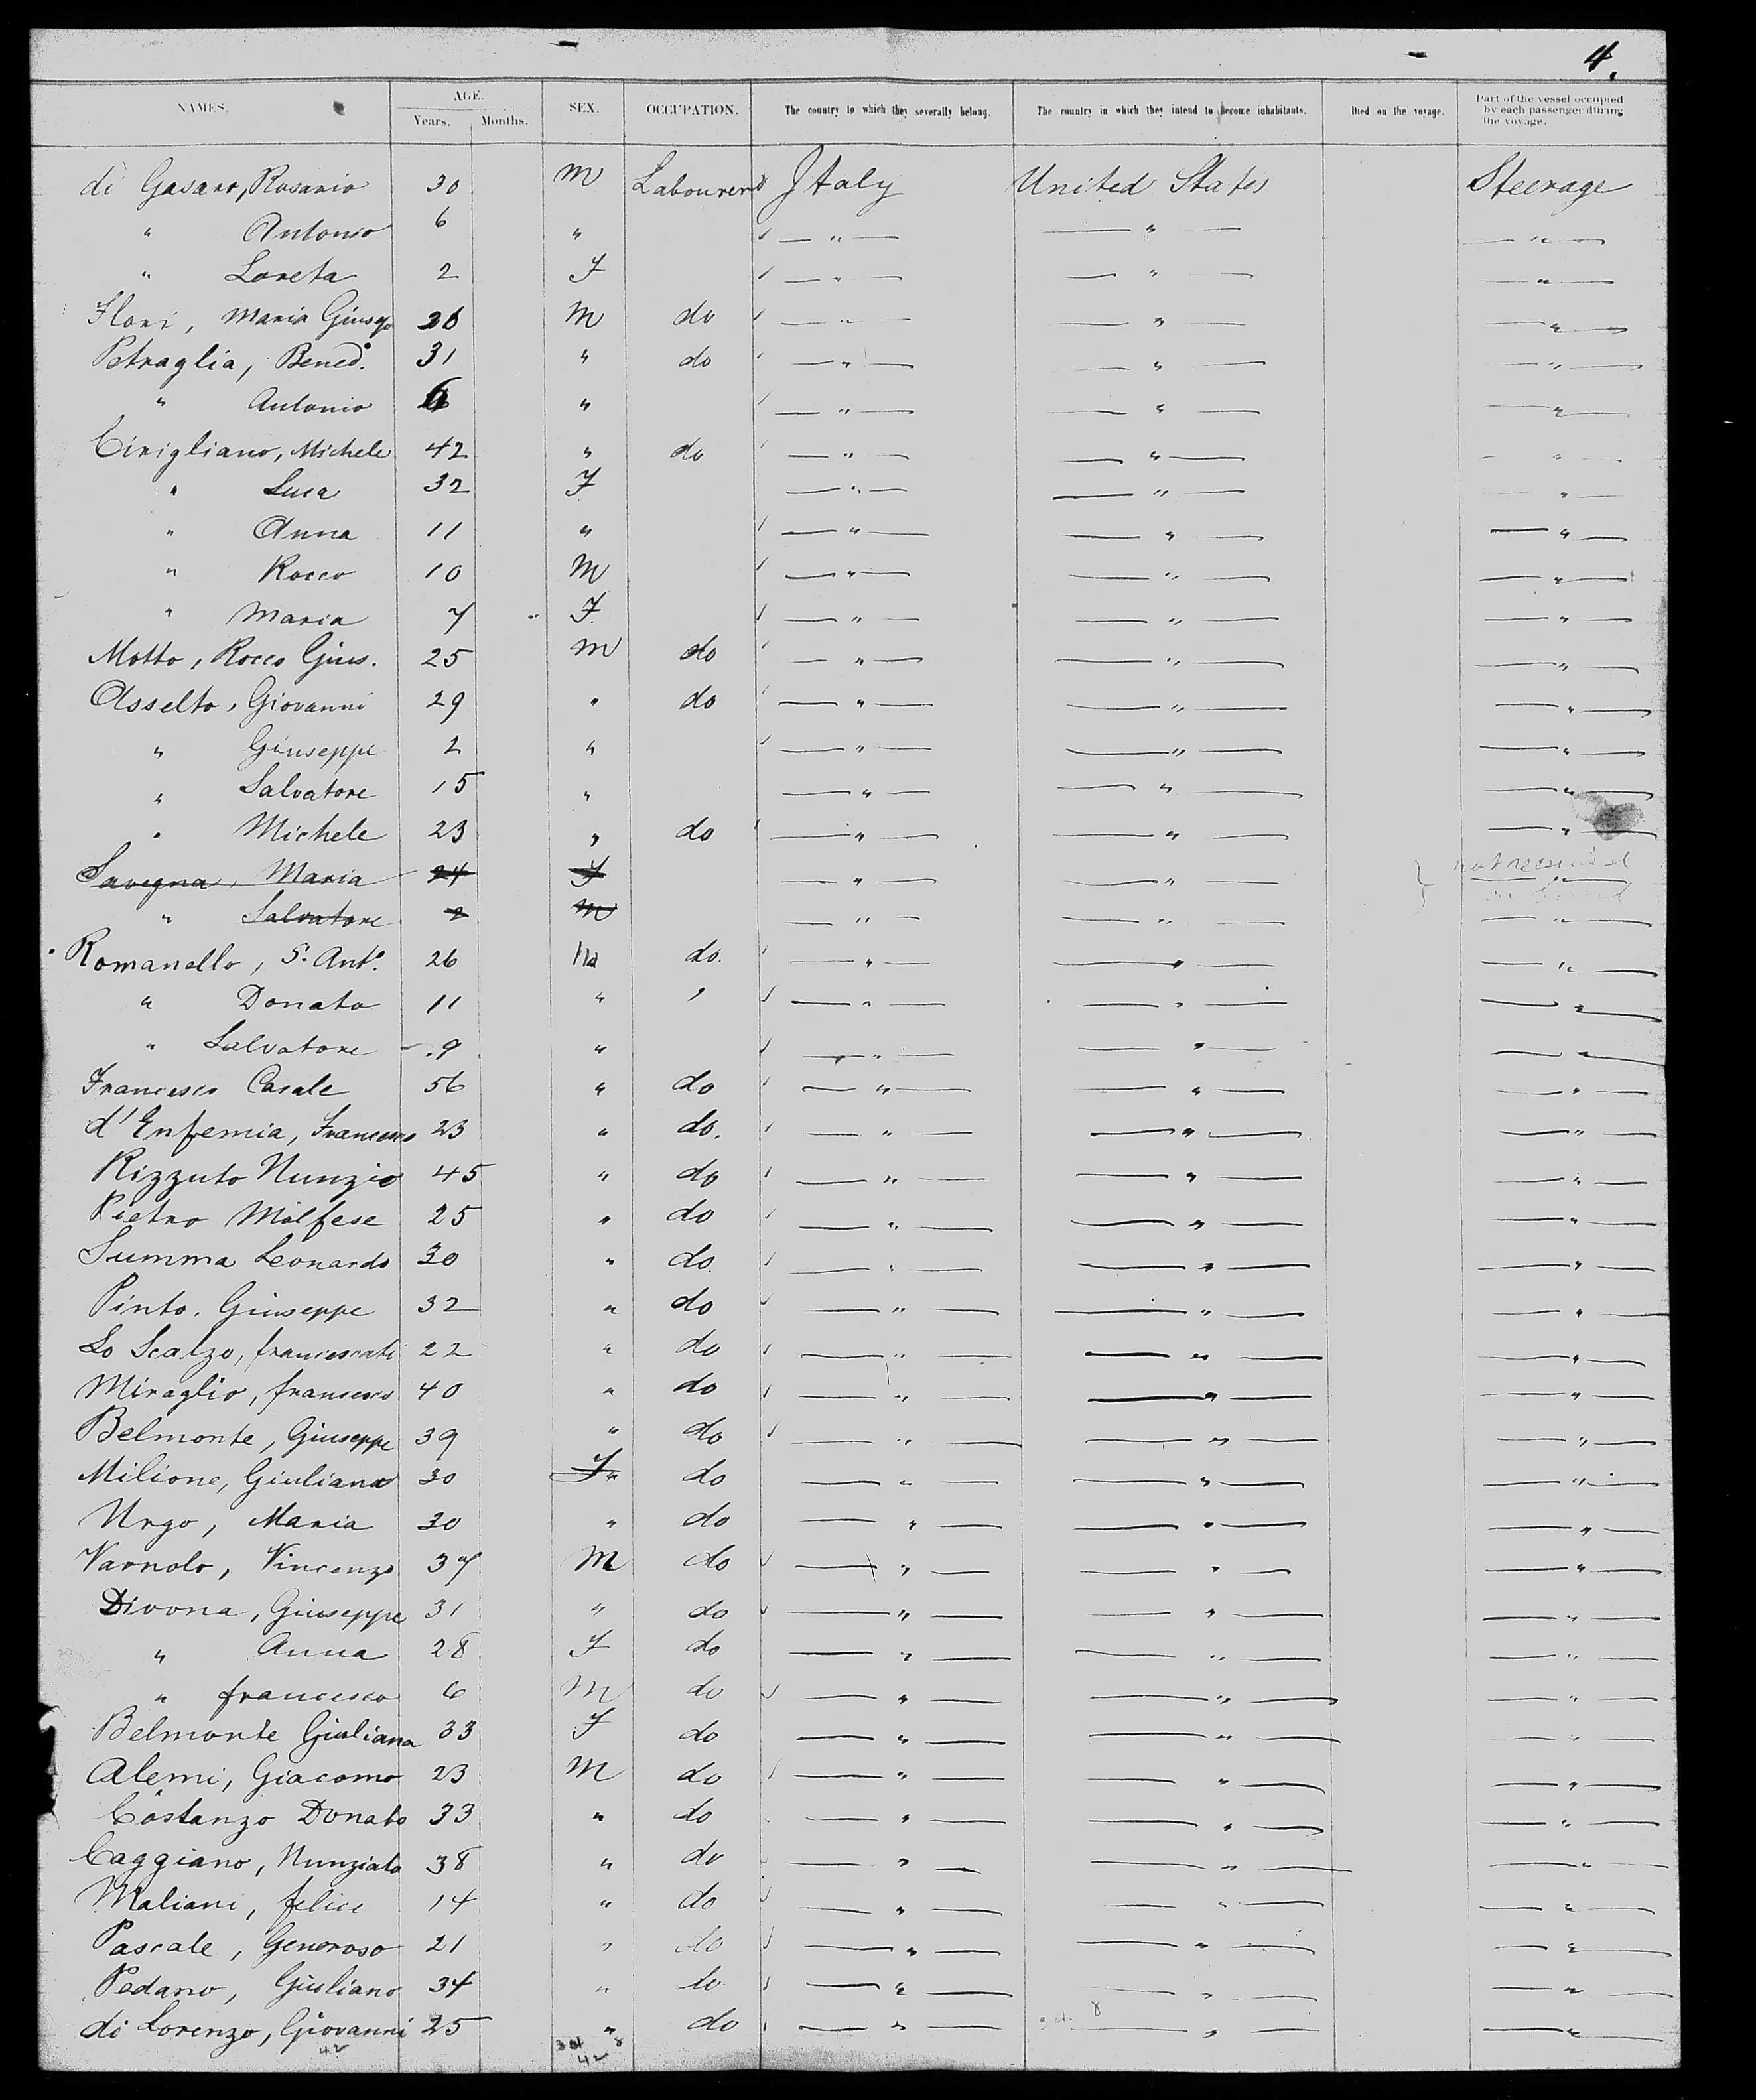 4.
NAMES. AGE. SEX. OCCUPATION. The country to which they severally belong. The country in which they intend to become inhabitants. Died on the voyage. Part of the vessel occupied by each passenger during the voyage.
Years. Months.
di Gasaro, Rosario 30 M Labourers Italy United States Steerage
" Antonio 6 " " " "
" Loreta 2 F " " "
Flori, Maria Giusep 26 M do " " "
Petraglia, Bened.o 31 " do " " "
" Antonio 6 " " " "
Cirigliano, Michele 42 " do " " "
" Luca 32 F " " "
" Anna 11 " " " "
" Rocco 10 M " " "
" Maria 7 F. " " "
Motto, Rocco Gius. 25 M do " " "
Asselto, Giovanni 29 " do " " "
" Giuseppe 2 " " " "
" Salvatore 15 " " " "
" Michele 23 " do " " "
Savegna, Maria 24 F " " not received "
" Salvatore 2 M " " on board "
Romanello, S. Ant.o 26 M do. " " "
" Donato 11 " " " " "
" Salvatore 9 " " " "
Francesco Casale 56 " do " " "
d'Enfemia, Francesco 23 " do. " " "
Rizzuto Nunzio 45 " do " " "
Pietro Molfese 25 " do " " "
Summa Leonardo 30 " do. " " "
Pinto. Giuseppe 32 " do " " "
Lo Scalzo, 22 " do " " "
Miraglio, francesco 40 " do " " "
Belmonte, Giuseppe 39 " do " " "
Milione, Giuliano 30 F " do " " "
Urgo, Maria 30 " do " " "
Varnolo, Vincenzo 37 M do " " "
Divona, Giuseppe 31 " do " " "
" Anna 28 F do " " "
" francesco 6 M do " " "
Belmonte Giuliana 33 F do " " "
Alemi, Giacomo 23 M do " " "
Costanzo Donato 33 " do " " "
Caggiano, Nunziato 38 " do " " "
Maliani, felice 14 " do " " "
Pascale, Generoso 21 " do " " "
Pedano, Giuliano 34 " do " " "
di Lorenzo, Giovanni 25 " do " " "
42 34 8
42